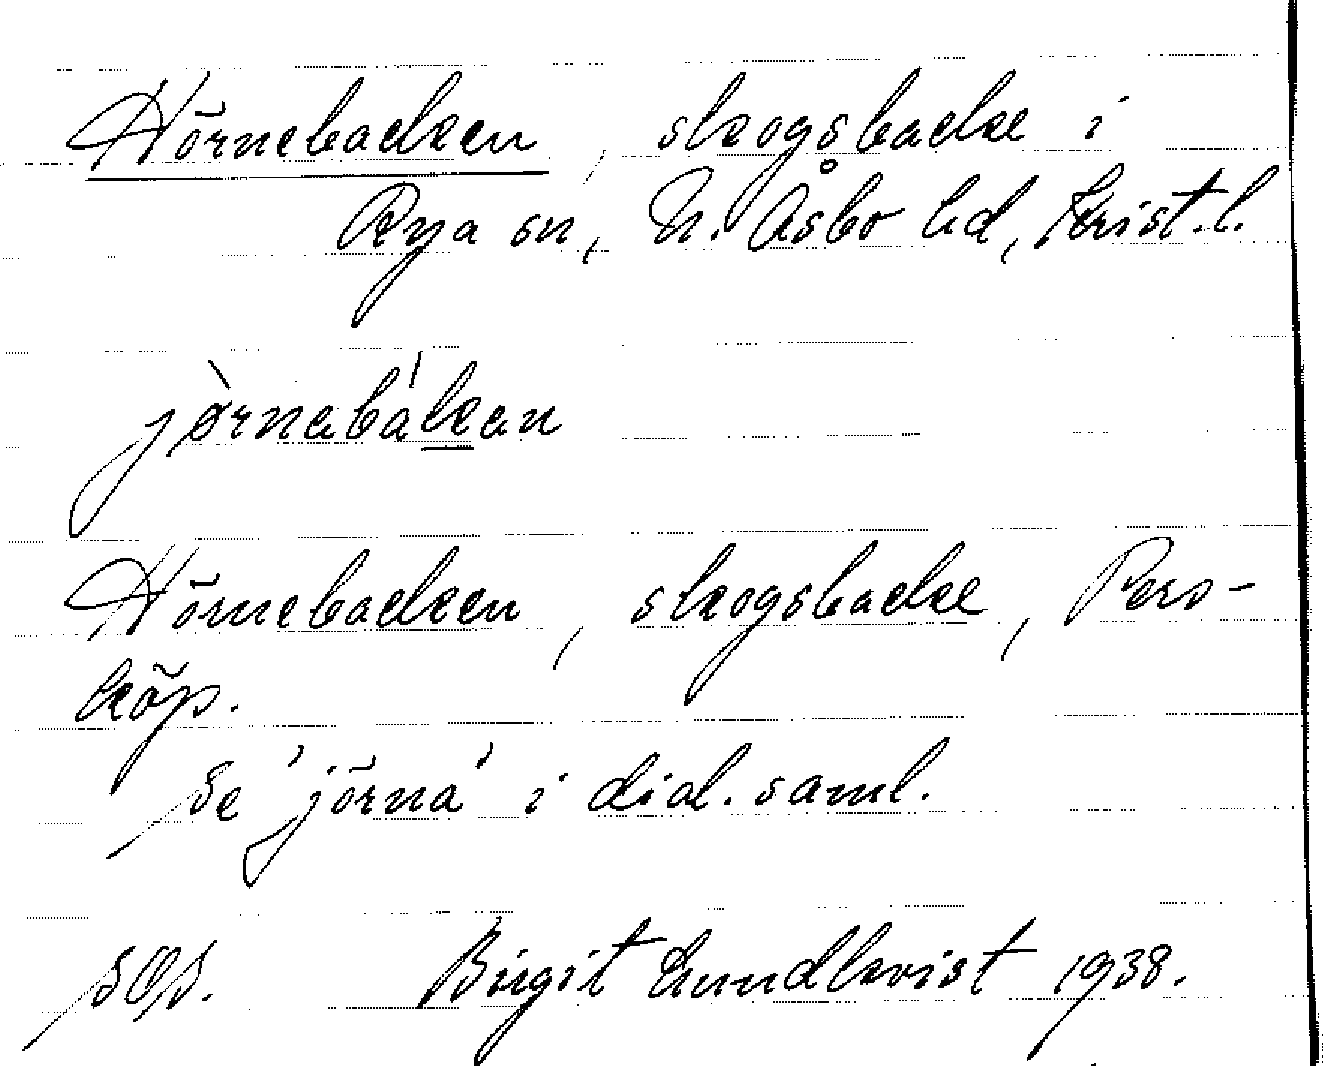 Hörnebacken, skogsbacke i
Rya sn, N. Åsbo hd, Krist. l.
jø̀rnabákan
Hörnebacken, skogsbacke, Pers-
köp.
Se 'jörna' i dial. saml.
SOS. Birgit Lundkvist 1938.